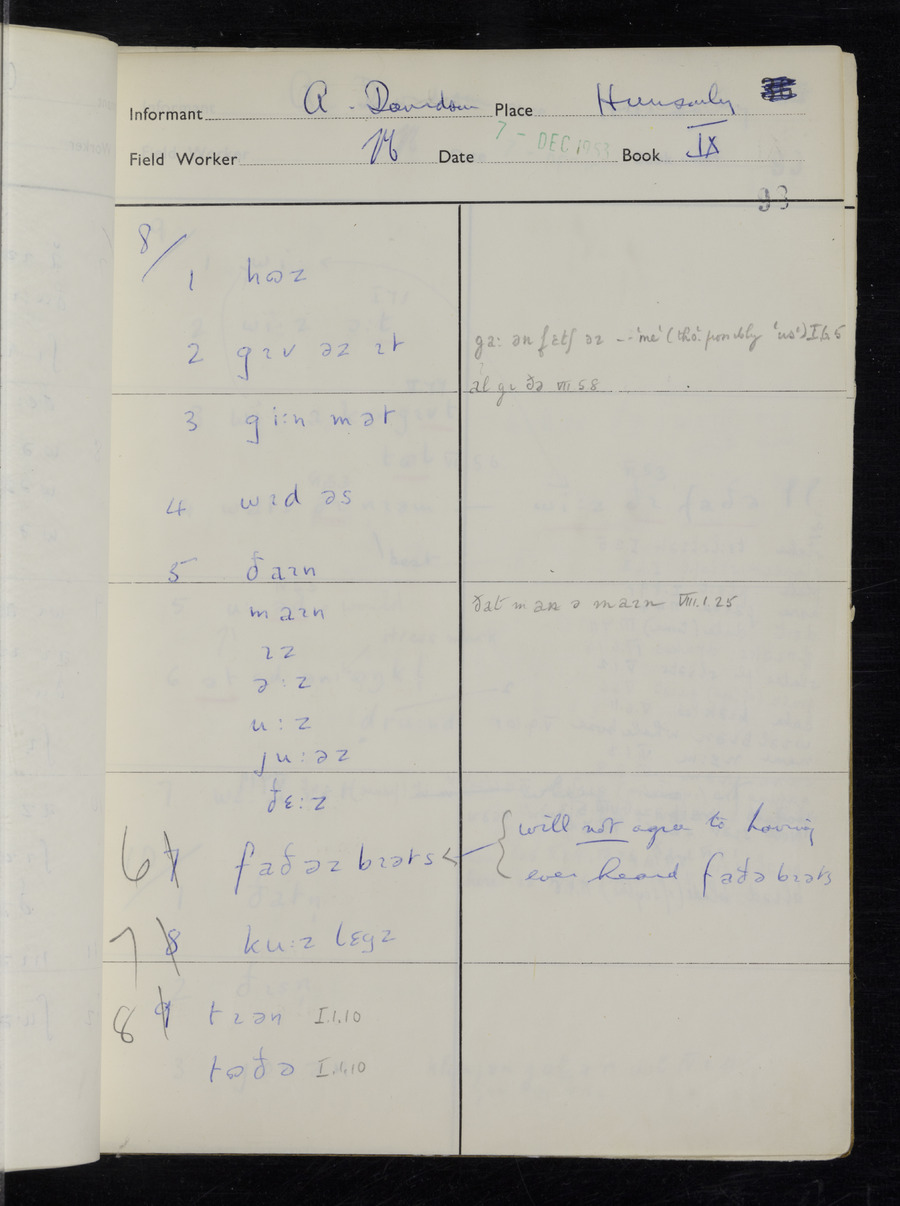 Informant A. Davidson Place Hunsonby
Field Worker Date 7 - DEC 1953 Book IX
93
8/
1 hɷz
2 gɪv əz ɪt
gaː ən fɛtʃ əz -- 'me' (tho' possibly 'us')
al gɪ ðə VIII 5 8
3 giːn mət
4 wɪd əs
5 ðaɪn
maɪn
ðat man ə maɪn VIII.1.25
ɪz
əːz
uːz
juːəz
ðɛːz
6 7 faðəz bɪəts
will not agree to having
ever heard faðə bɪəts
7 8 kuːz lɛgz
8 9 tɪən I.1.10
tɷðə I.1.10